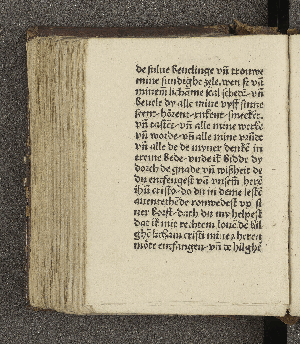 de sulue beuelinge vn̄ trouwe
mine sundighe zele. wen se vā
minem lichame scal schedē. vn̄
beuele dy alle mine vyff sinne
seent. horent. rukent. smeckēt.
vn̄ tastēt. vn̄ alle mine werke
vn̄ worde. vn̄ alle mine vrūde
vn̄ alle de de myner denkē in
erem bede. vnde ik bidde dy
dorch de gnade vn̄ wißheit de
du entfengest vā vnsem herē
ihū cristo. do du in deme lestē
auentethē rouwedest vp si
ner borst. dath du my helpest
dat ik mit rechtem louē dē hil
ghē licham cristi mines heren
mote entfangen. vn̄ de hilghē